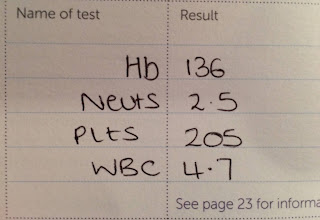 Name of test Result
Hb 136
Neuts 2.5
Plts 205
WBC 4.7
See page 23 for informa